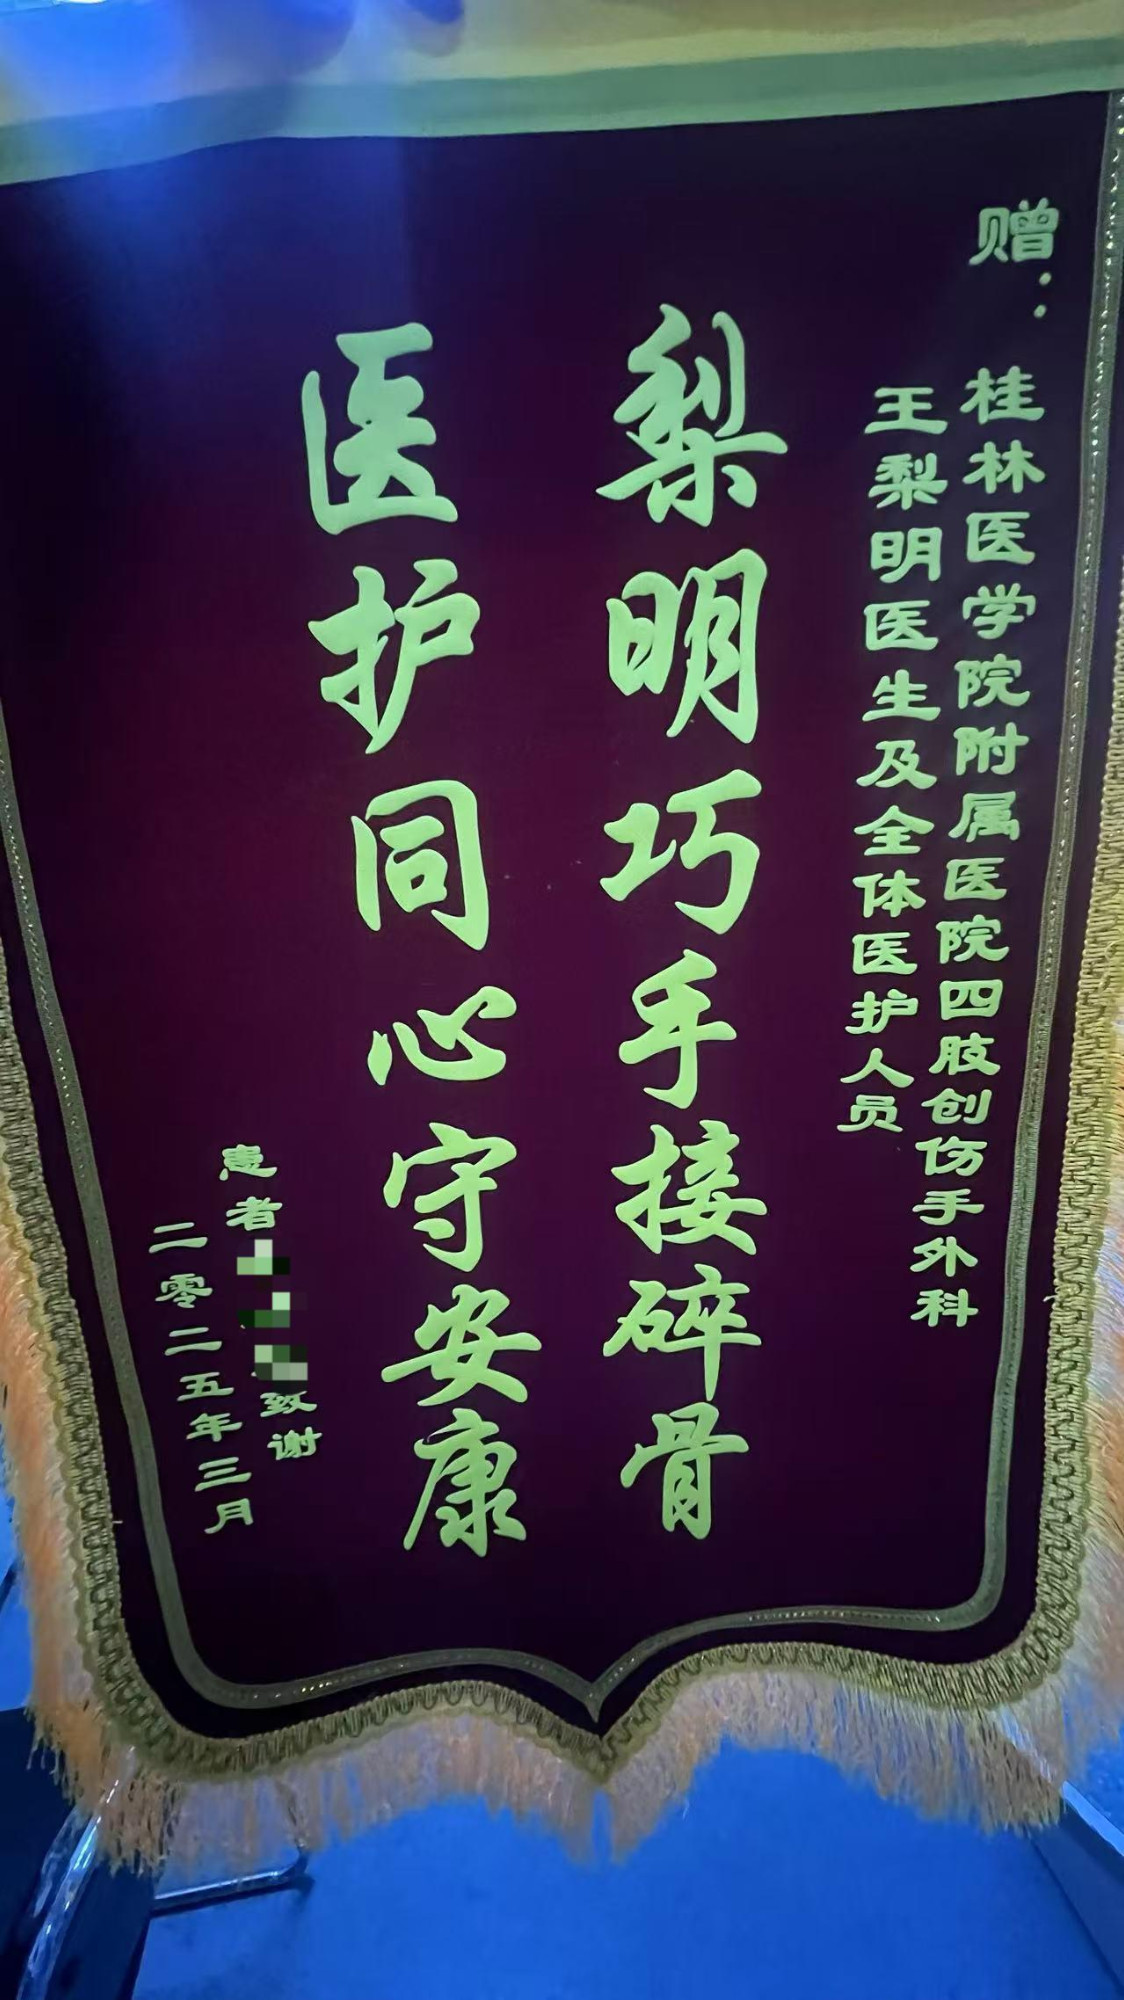 赠：
桂林医学院附属医院四肢创伤手外科
王梨明医生及全体医护人员
梨明巧手接碎骨
医护同心守安康
患者
致谢
二零二五年三月